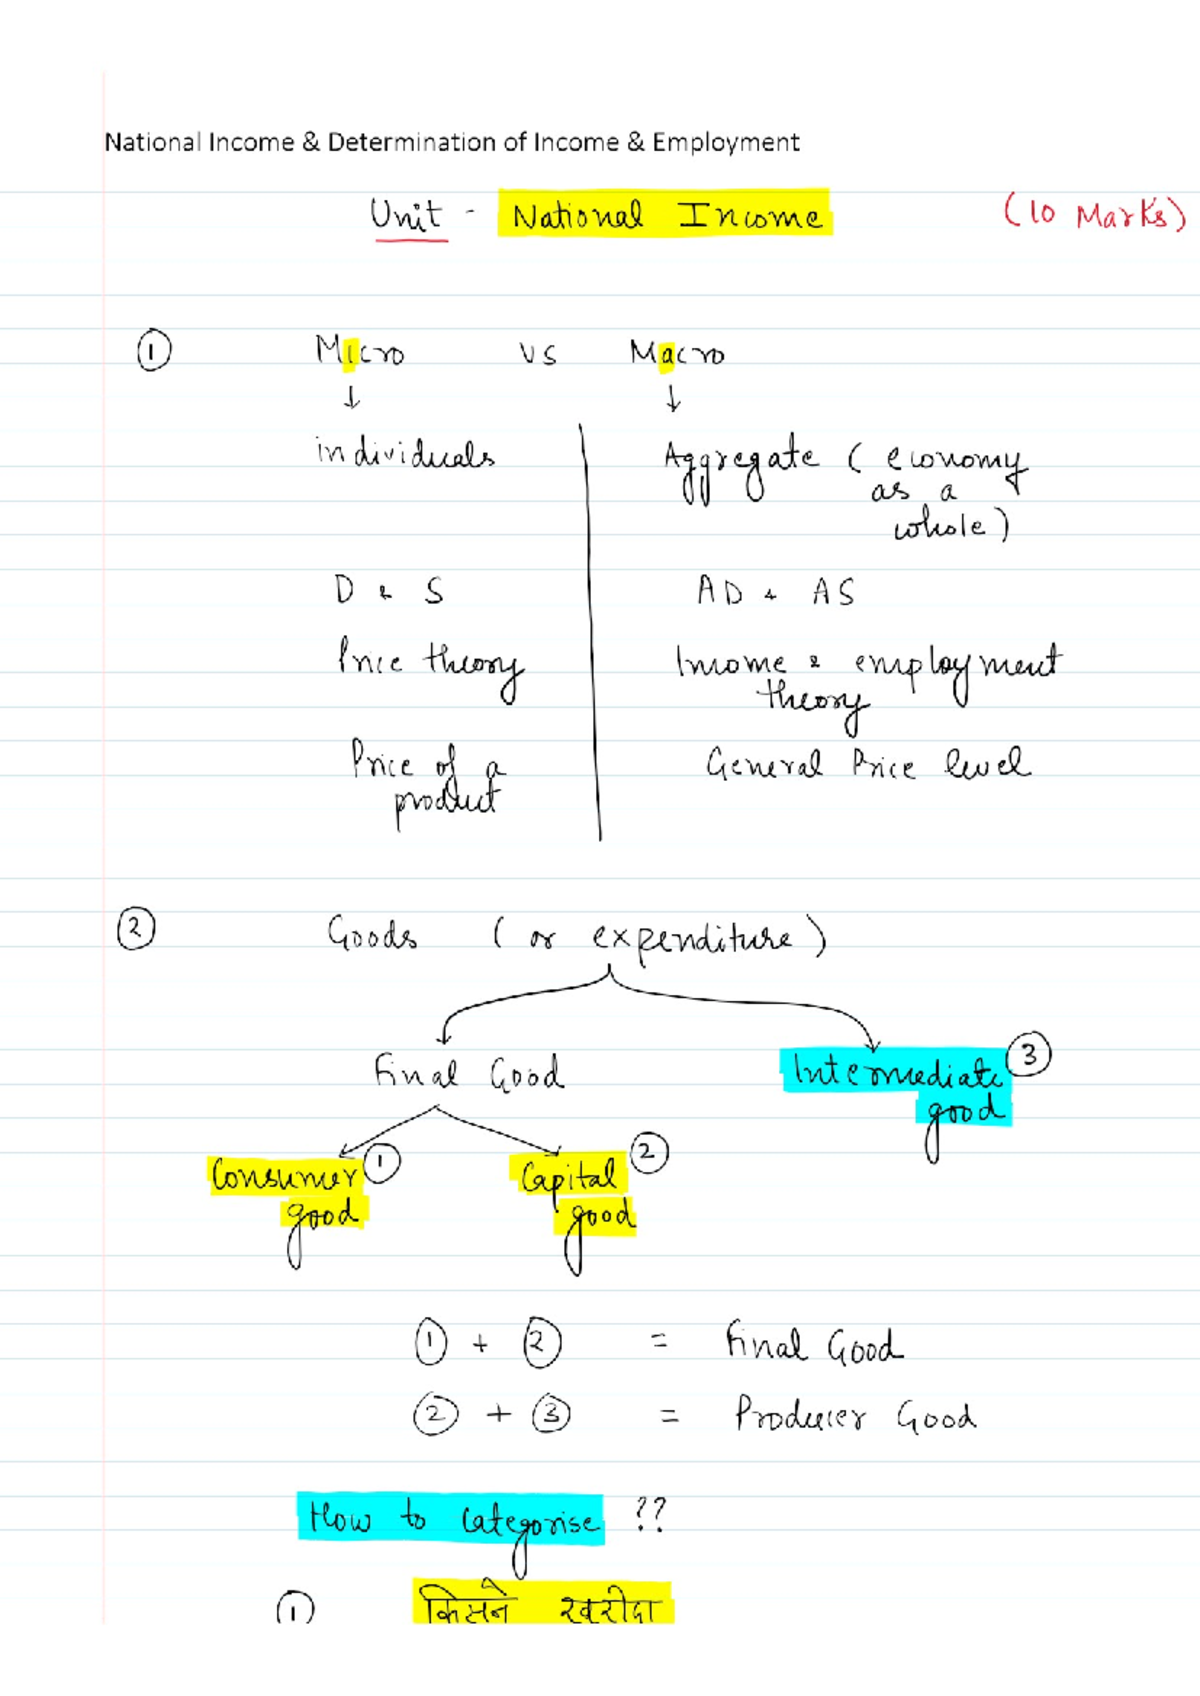 National Income & Determination of Income & Employment
Unit - National Income (10 Marks)
① Micro vs Macro
↓ ↓
individuals Aggregate (economy
as a
whole)
D & S AD & AS
Price theory Income & employment
theory
Price of a General Price level
product
② Goods (or expenditure)
Final Good Intermediate ③
good
Consumer ① Capital ②
good good
① + ② = Final Good
② + ③ = Producer Good
How to categorise ??
① किसने खरीदा